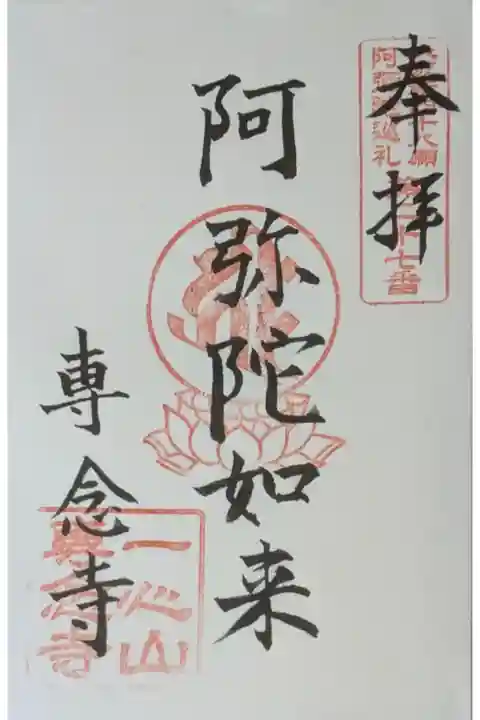 奉拝
阿弥陀巡礼
七番
阿弥陀如来
専念寺
一心山
専念寺